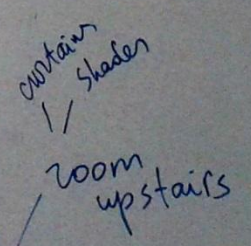 curtains
shades
room
upstairs